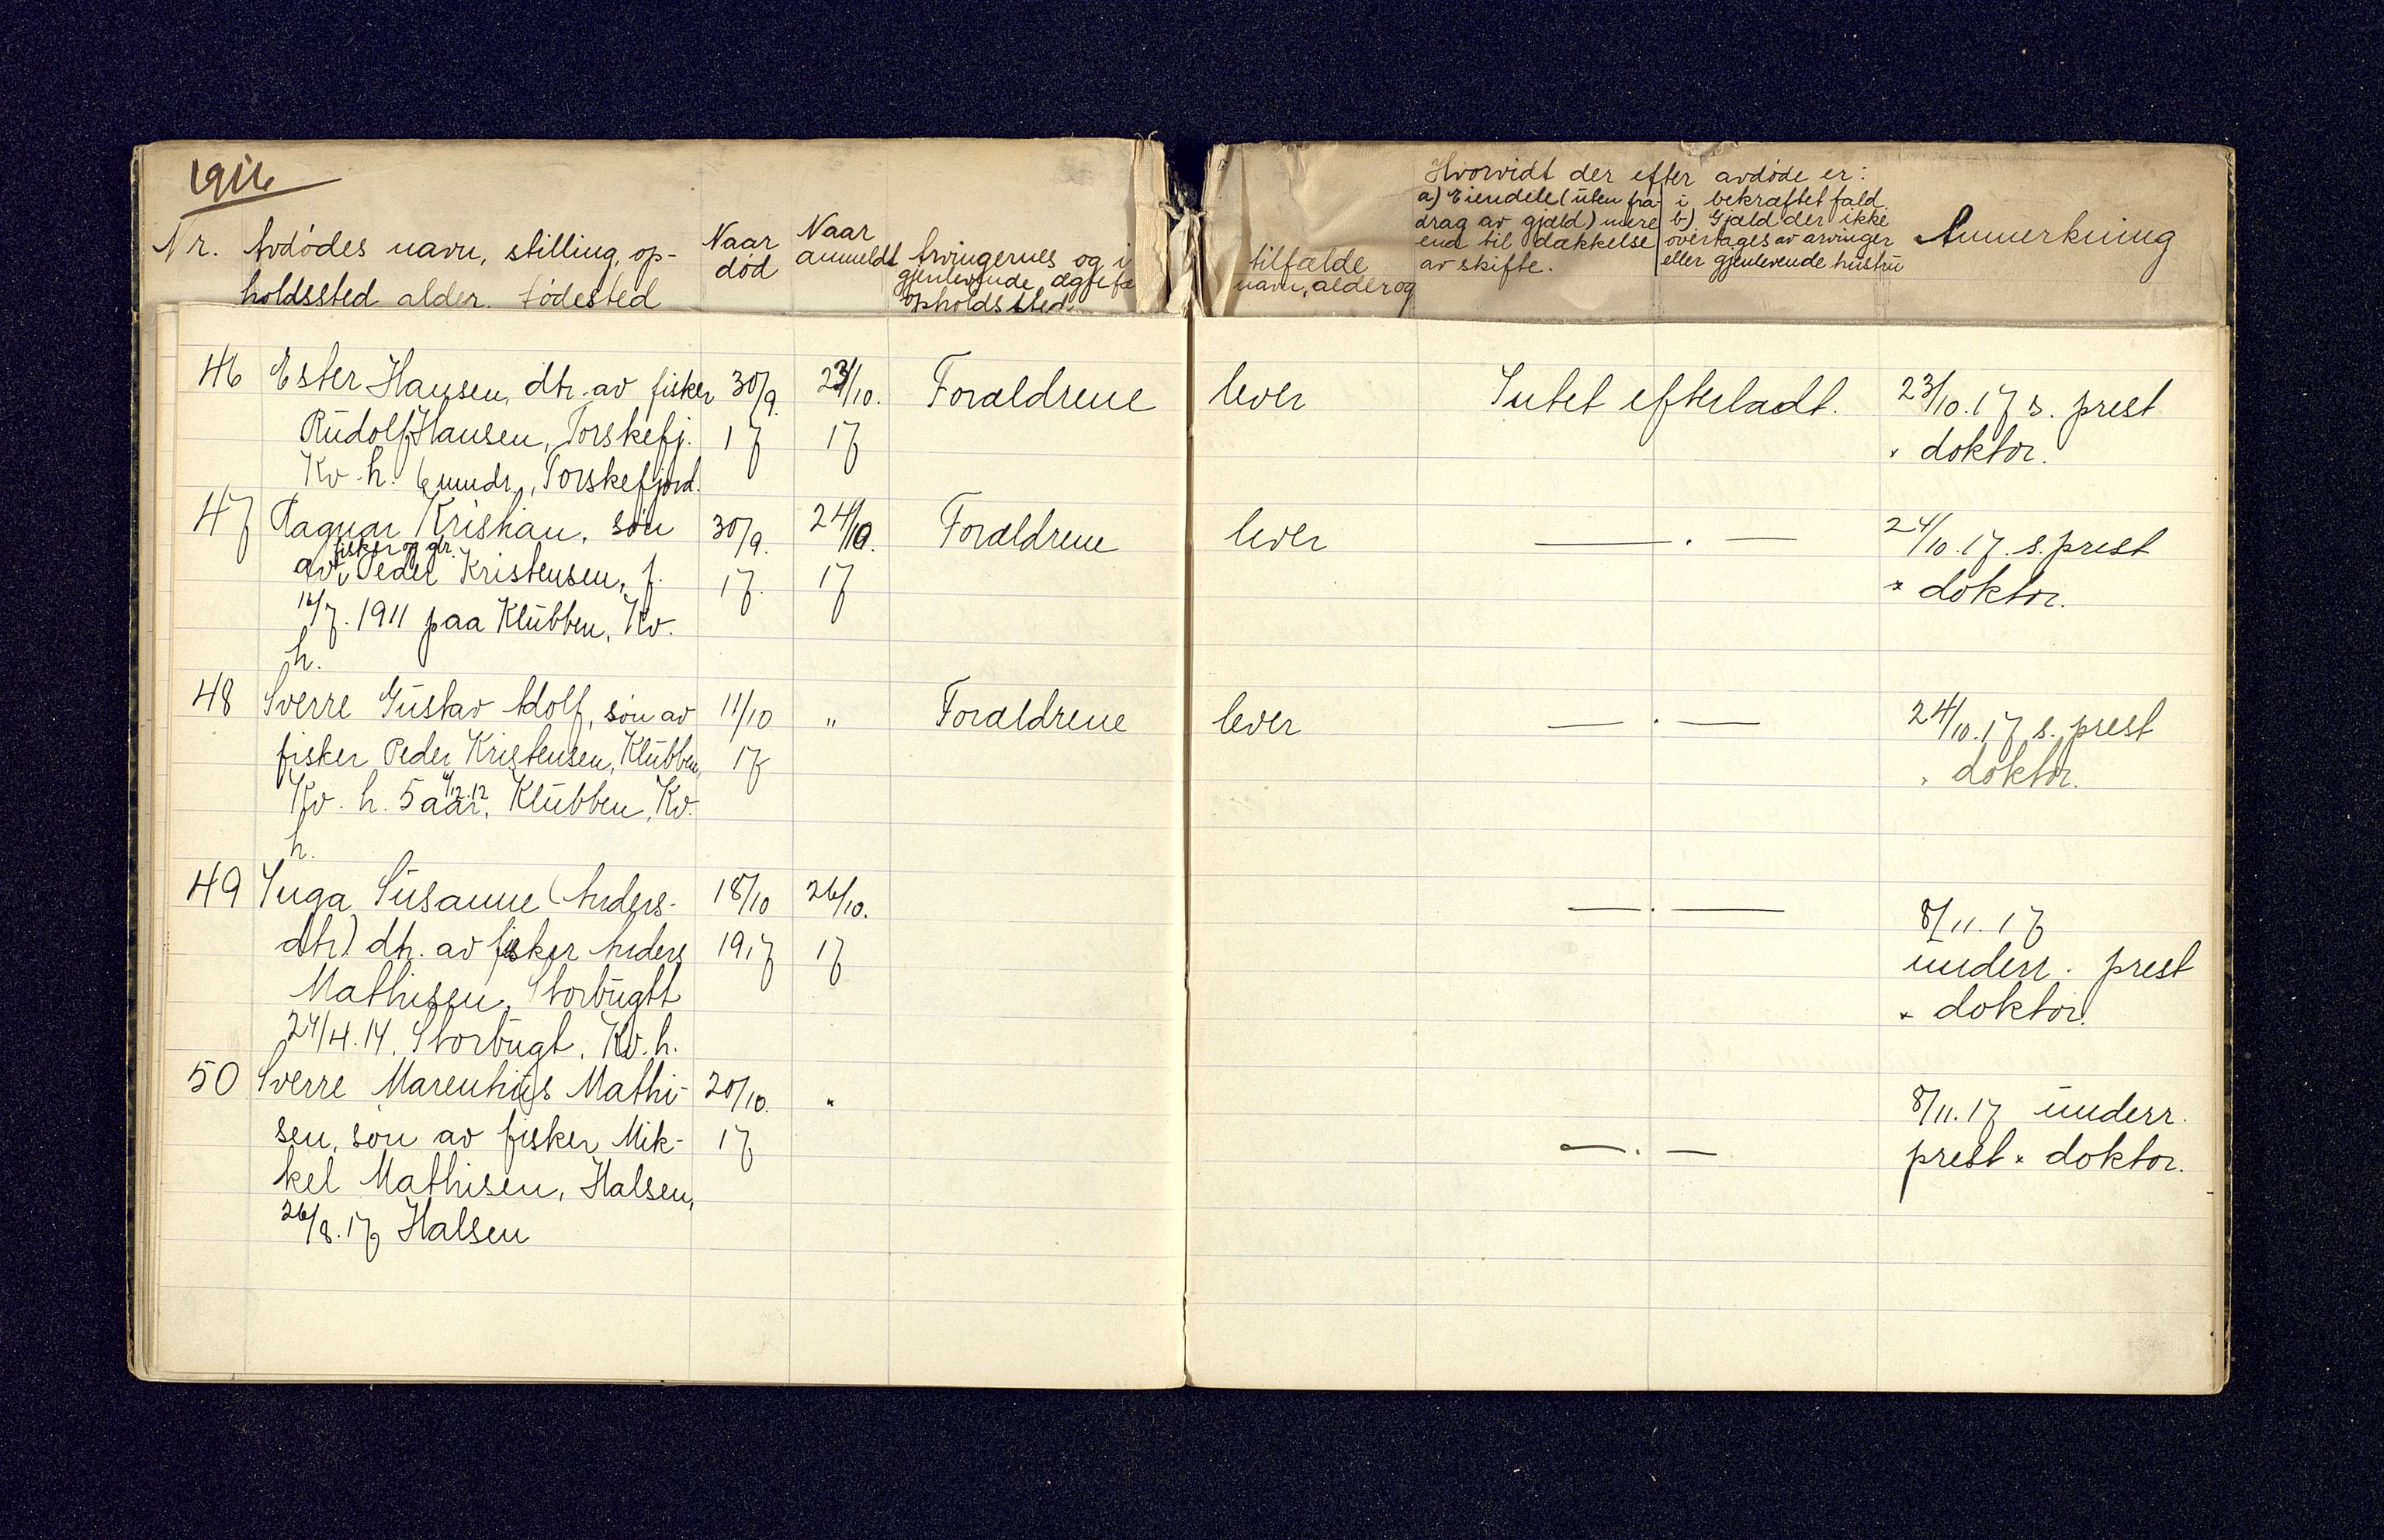 1916
Nr. Avdødes navn, stilling, op-
holdssted alder. fødested
Naar
død
Naar
anmeldt
Arvingernes og i
gjenlevende ægtefæ
opholdssted.
tilfælde
navn, alder og
Hvorvidt der efter avdøde er:
a) Eiendele (uten fra-
drag av gjæld) mere
end til dækkelse
av skifte.
i bekræftet fald
b) Gjæld der ikke
overtages av arvinger
eller gjenlevende hustru
Anmerkning
46 Ester Hansen, dtr. av fisker 30/9. 23/10. Forældrene lever Intet efterladt. 23/10.17 s. prest
Rudolf Hansen, Torskefj. 17 17 " doktor.
Kv. h. 6 mndr., Torskefjord.
47 Ragnar Kristian, søn 30/9. 24/10. Forældrene lever — . — 24/10.17. s. prest
fisker og gbr.
av Peder Kristensen, f. 17. 17 " doktor.
16/7. 1911 paa Klubben, Kv.
h.
48 Sverre Gustav Adolf, søn av 11/10 " Forældrene lever — . — 24/10.17 s. prest
fisker Peder Kristensen, Klubben, 17 " doktor.
Kv. h. 5 aar, Klubben, Kv.
h.
49 Inga Susanne (Anders- 18/10 26/10. — . — 8/11. 17
dtr) dtr. av fisker Anders 1917 17 underr. prest
Mathisen, Storbugtt " doktor.
24/4.14. Storbugt, Kv. h.
50 Sverre Marentius Mathi- 20/10. " 8/11.17 underr.
sen, søn av fisker Mik- 17 — . — prest " doktor.
kel Mathisen, Halsen,
26/8.17 Halsen